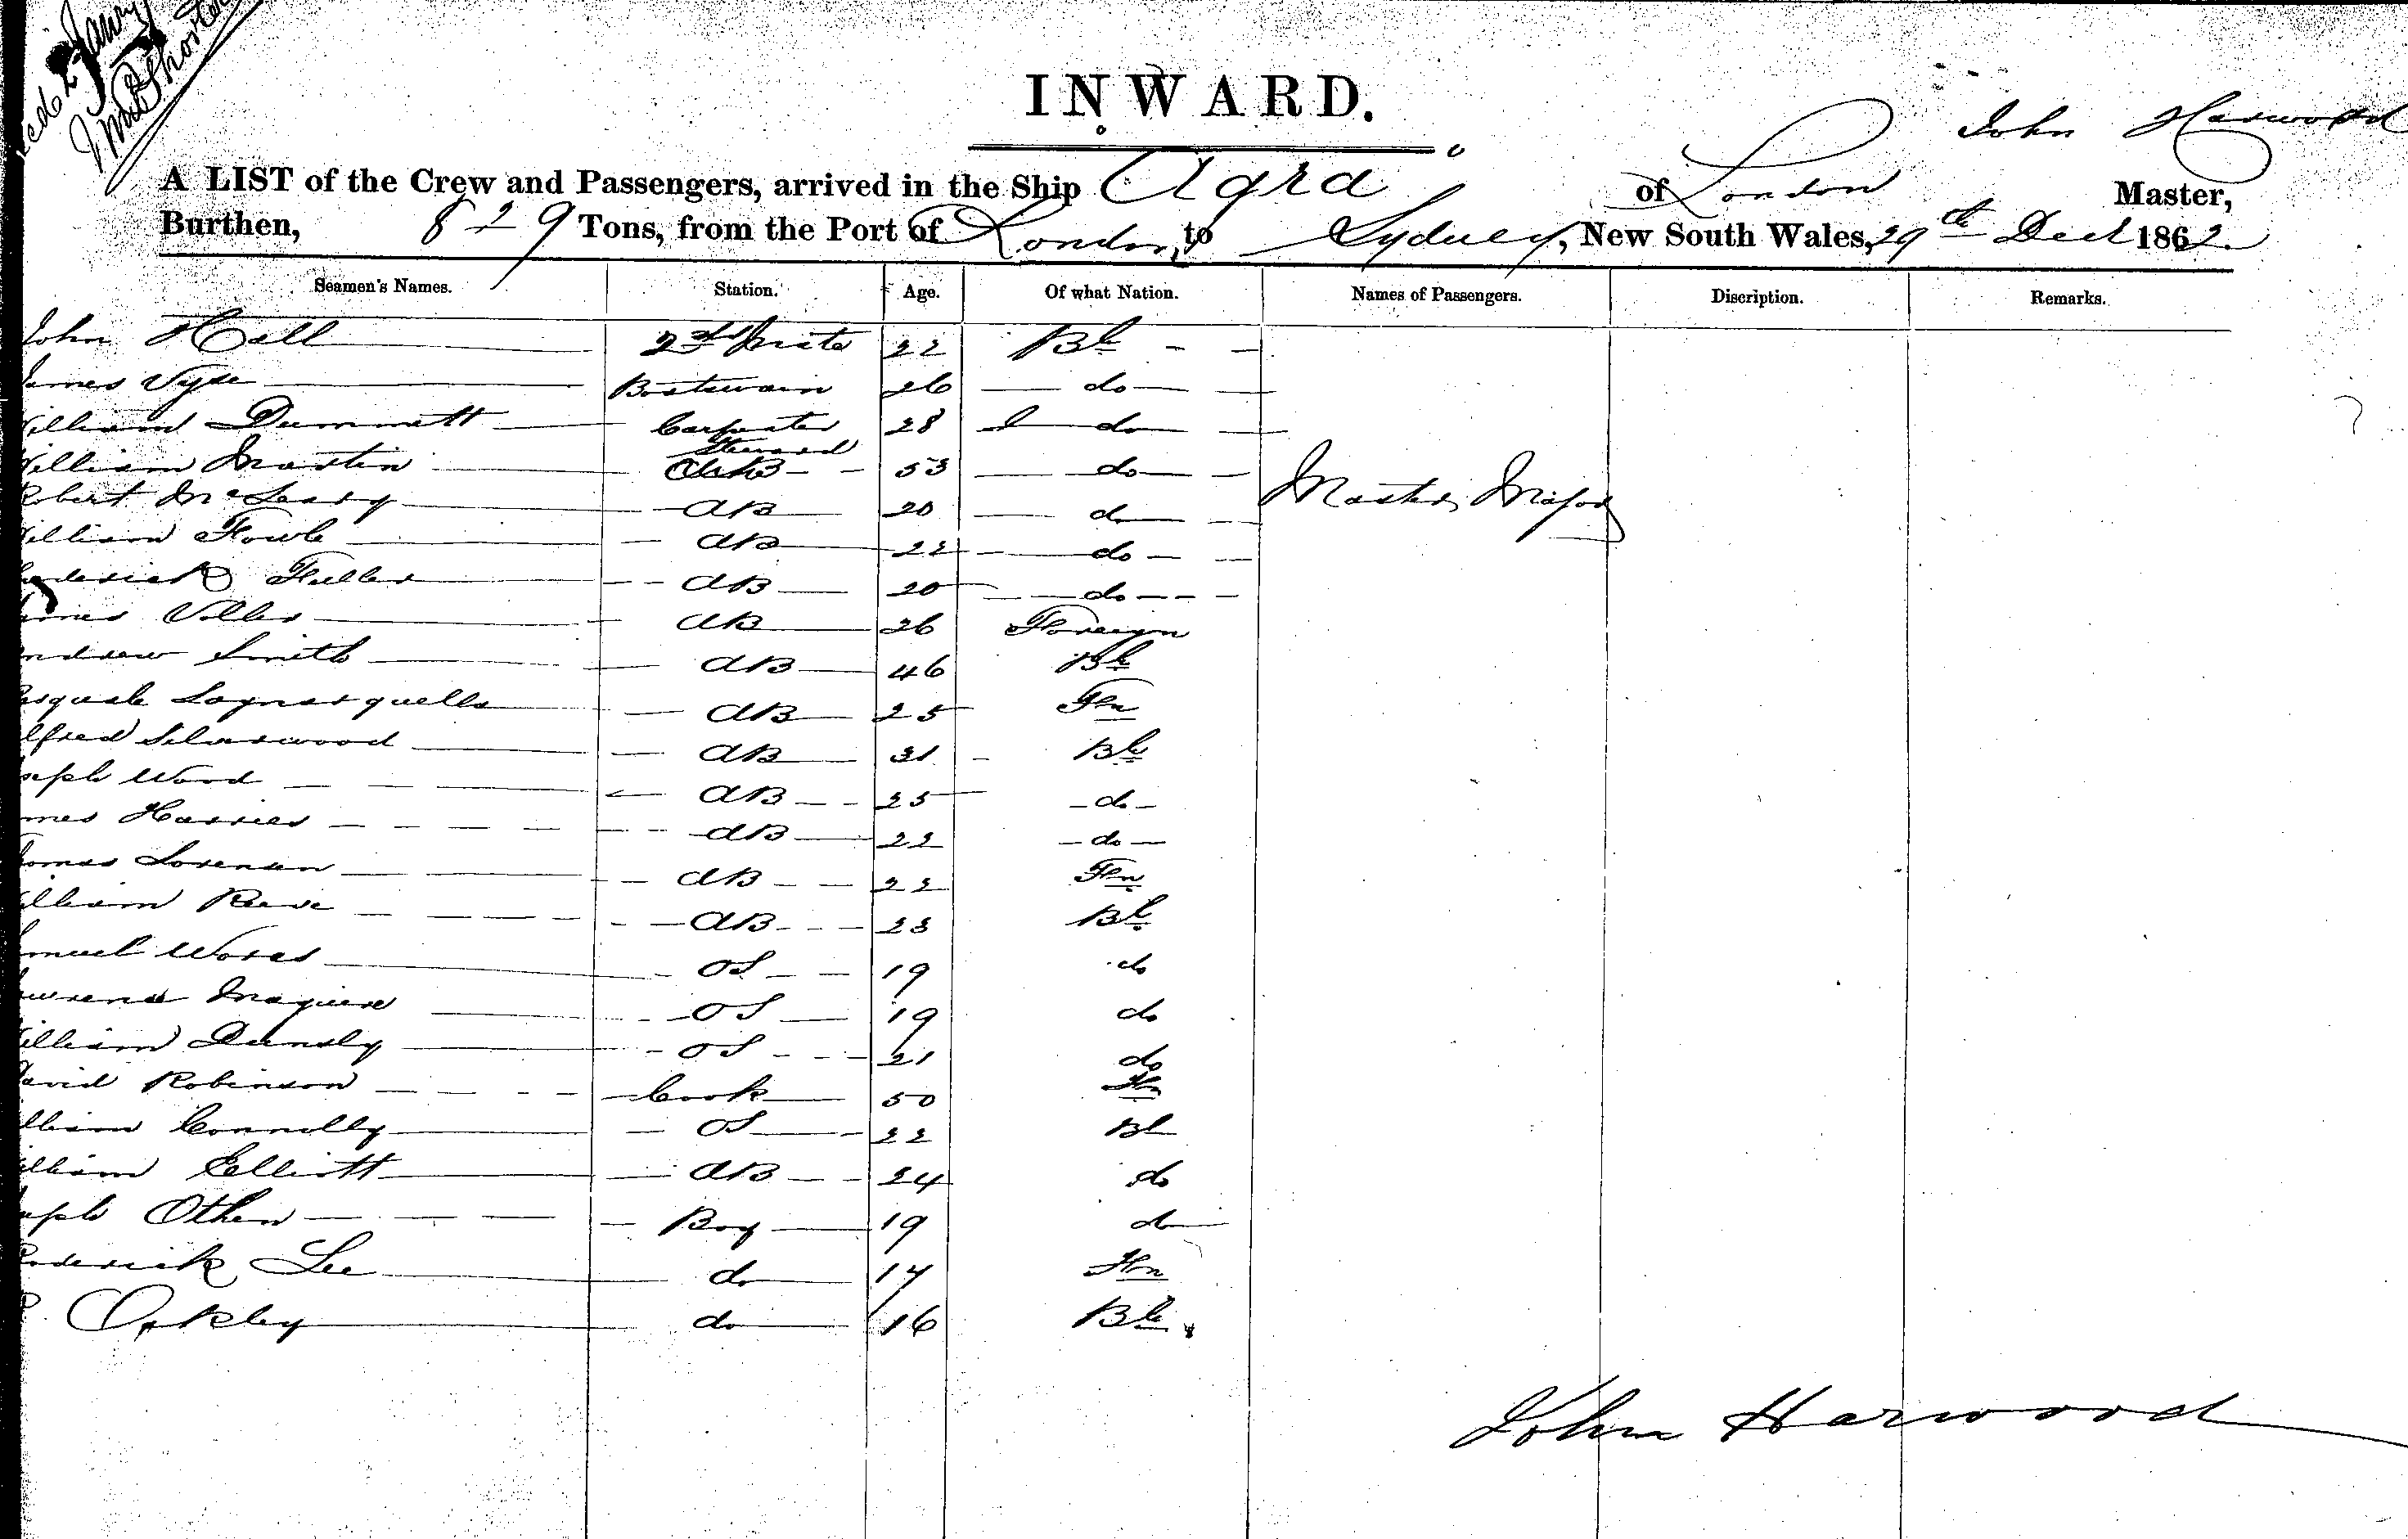 INWARD.
John Harwood
A LIST of the Crew and Passengers, arrived in the Ship Agra of London Master,
Burthen, 829 Tons, from the Port of London, to Sydney, New South Wales, 29th Decr 1862.
Seamen's Names. Station. Age. Of what Nation. Names of Passengers. Discription. Remarks.
John Hall 2nd Mate 22 Bh
James Vyse Boatswain 26 do
William Dummett Carpenter 28 do
Steward
William Martin 53 do
Robert McLeary AB 20 do
William Fowle AB 22 do
Frederick Fuller AB 20 do
James Voller AB 26 Foreign
Andrew Smith AB 46 Bh
AB 25 Fgn
Alfred AB 31 Bh
Joseph Wood AB 25 do
James Harries AB 22 do
Thomas Sorensen AB 22 Fgn
William Reeve AB 23 Bh
Samuel OS 19 do
Lawrence Maguire OS 19 do
William OS 21 do
David Robinson Cook 50 Fn
William Connolly OS 22 Bh
William Elliott AB 24 do
Joseph Othen Boy 19 do
Roderick Lee do 17 Fn
R. Oakley do 16 Bh
Master Major
John Harwood